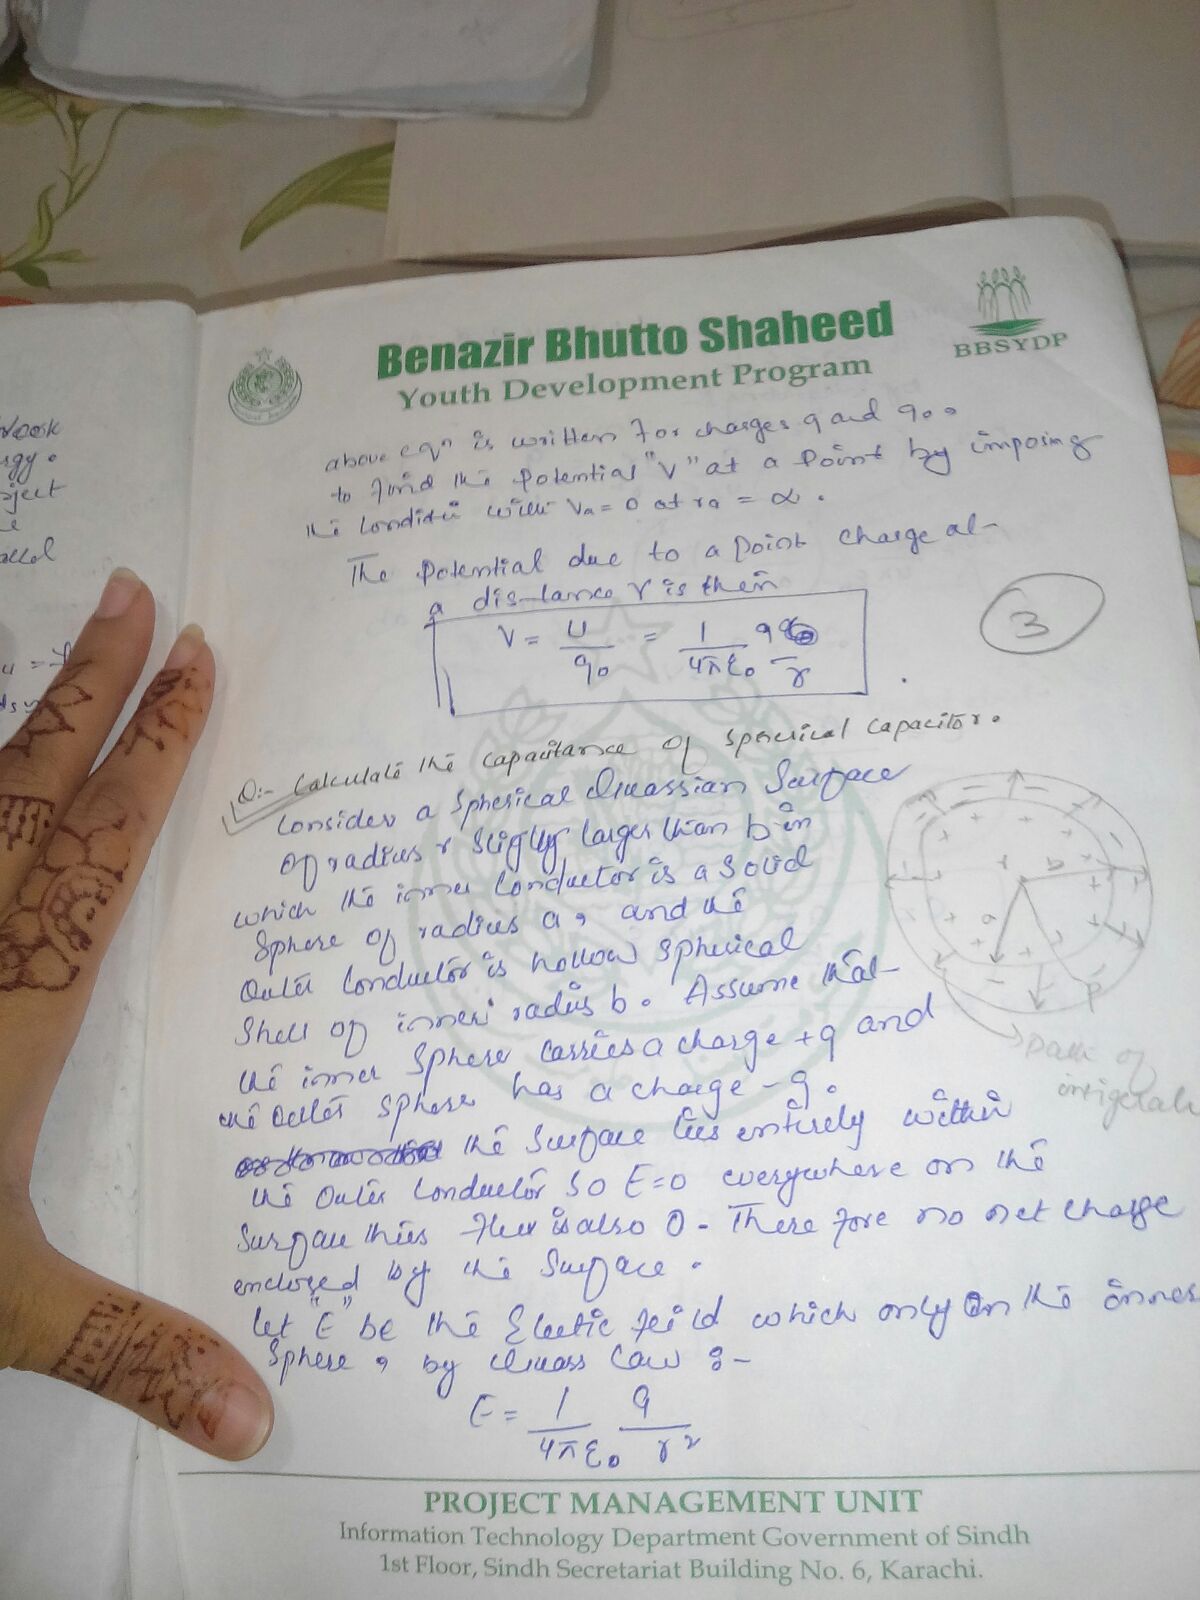 Benazir Bhutto Shaheed
Youth Development Program
BBSYDP
above eqn is written for charges q and q0.
to find the potential "V" at a point by imposing
the condition with Va = 0 at ra = ∝.
The potential due to a point charge at
a distance r is then
V = U/q0 = 1/4πε0 q/r
3
Q:- Calculate the capacitance of spherical capacitor.
Consider a spherical Guassian Surface
of radius r slightly larger than b in
which the inner conductor is a solid
sphere of radius a, and the
outer conductor is hollow spherical
shell of inner radius b. Assume that
the inner sphere carries a charge +q and
the outer sphere has a charge -q.
the surface lies entirely within
the outer conductor so E=0 everywhere on the
surface this flux is also 0. There fore no net charge
enclosed by the surface.
let "E" be the Electic feild which only on the inner
sphere, by Guass law :-
E = 1/4πε0 q/r²
r
b
a
path of
work
object
u =
PROJECT MANAGEMENT UNIT
Information Technology Department Government of Sindh
1st Floor, Sindh Secretariat Building No. 6, Karachi.